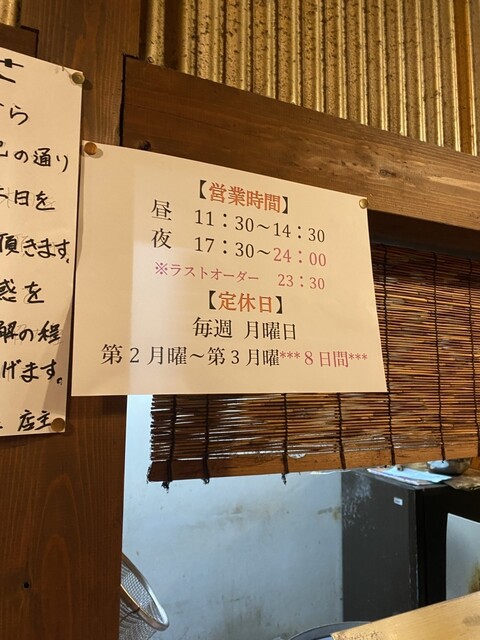 ら
の通り
日を
頂きます。
惑を
解の程
げます。
店主
【営業時間】
昼 11：30～14：30
夜 17：30～24：00
※ラストオーダー 23：30
【定休日】
毎週 月曜日
第２月曜～第３月曜***８日間***